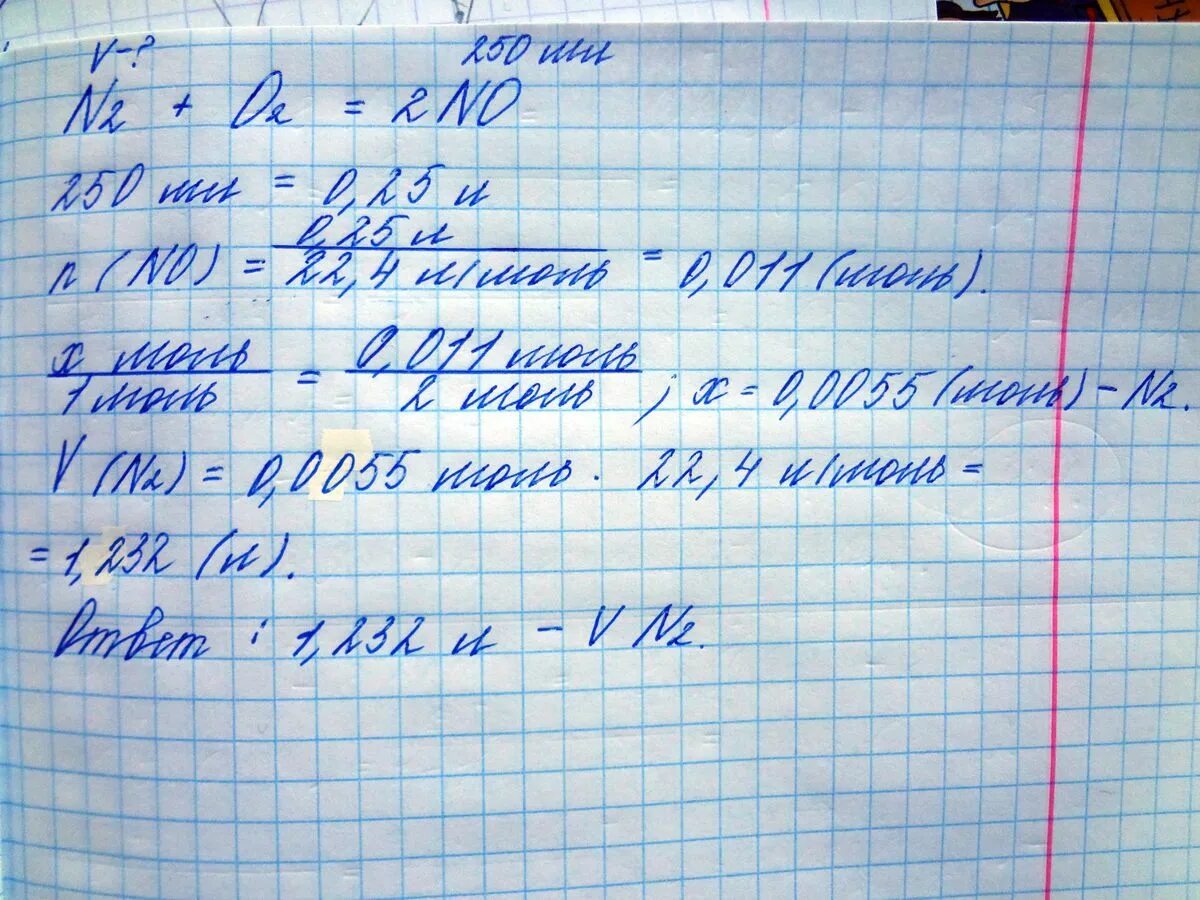 V-? 250 мл
N2 + O2 = 2NO
250 мл = 0,25 л
n (NO) = 0,25 л / 22,4 л/моль = 0,011 (моль).
x моль / 1 моль = 0,011 моль / 2 моль ; x = 0,0055 (моль) - N2.
V (N2) = 0,0055 моль · 22,4 л/моль =
= 1,232 (л).
Ответ : 1,232 л - V N2.